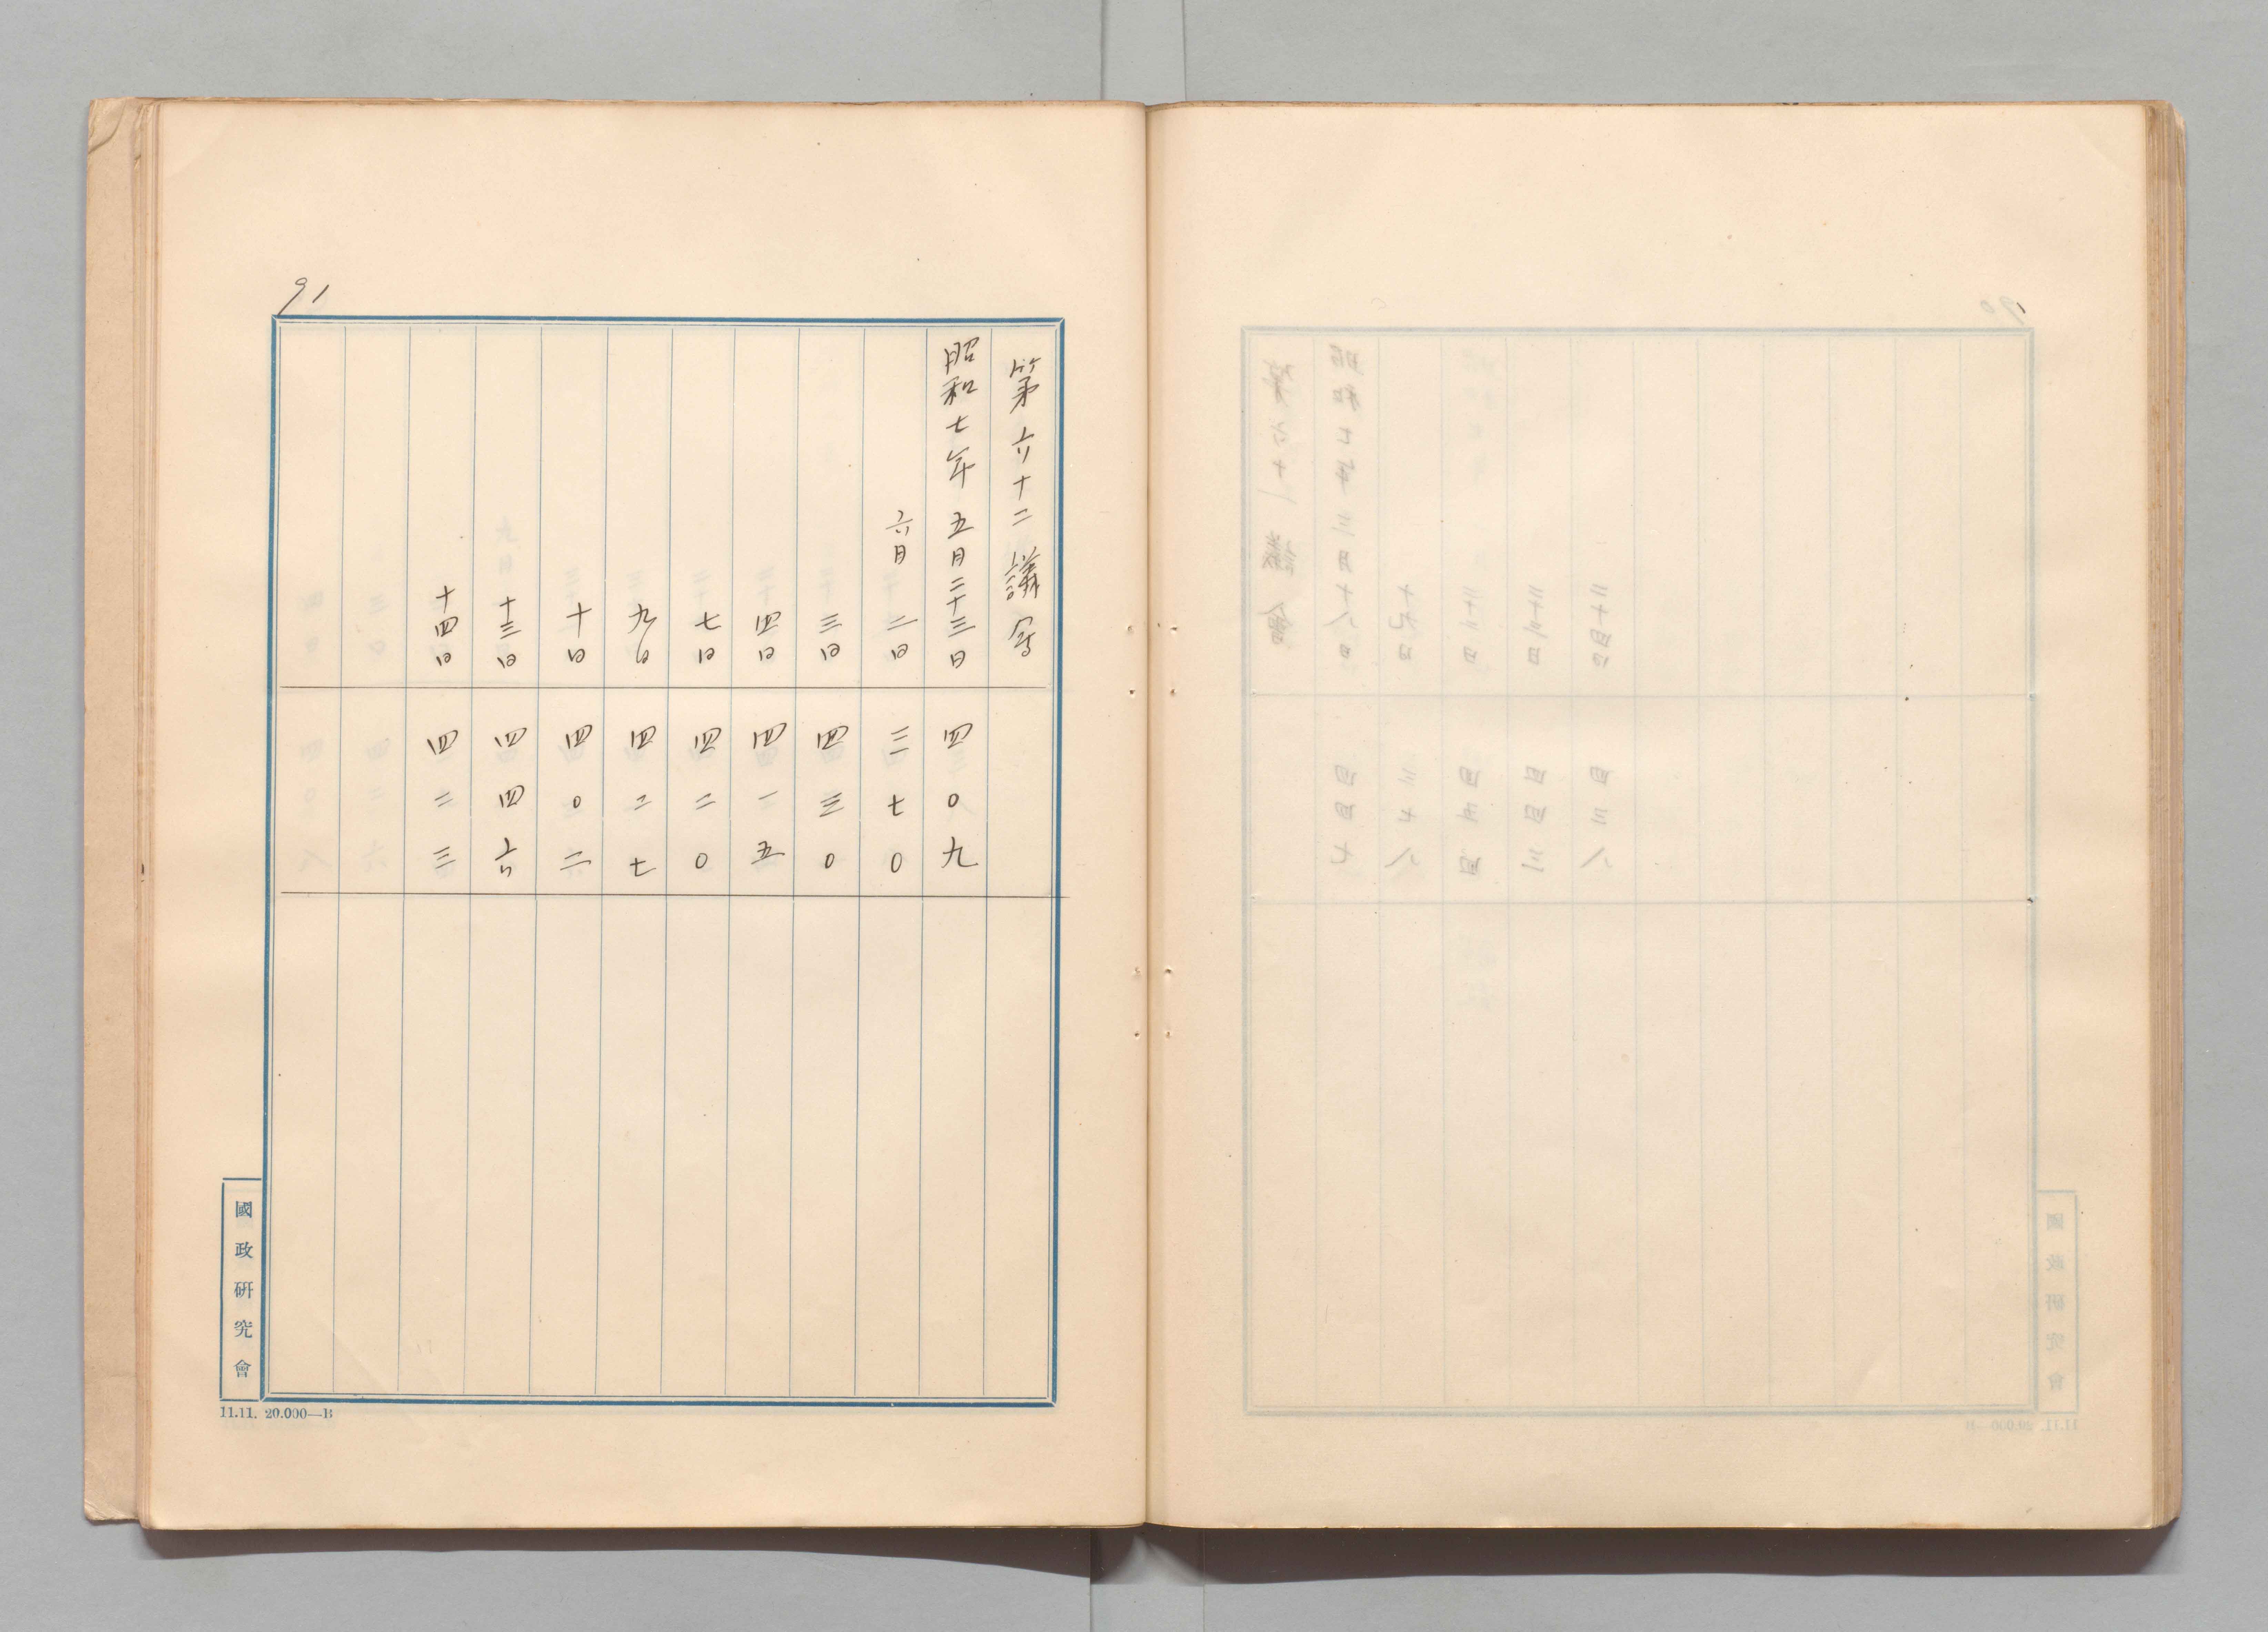 91
第六十二議会
昭和七年五月二十三日 四〇九
六月二日 三七〇
三日 四三〇
四日 四一五
七日 四二〇
九日 四二七
十日 四〇二
十三日 四四六
十四日 四二三
國政研究會
11.11. 20.000—B